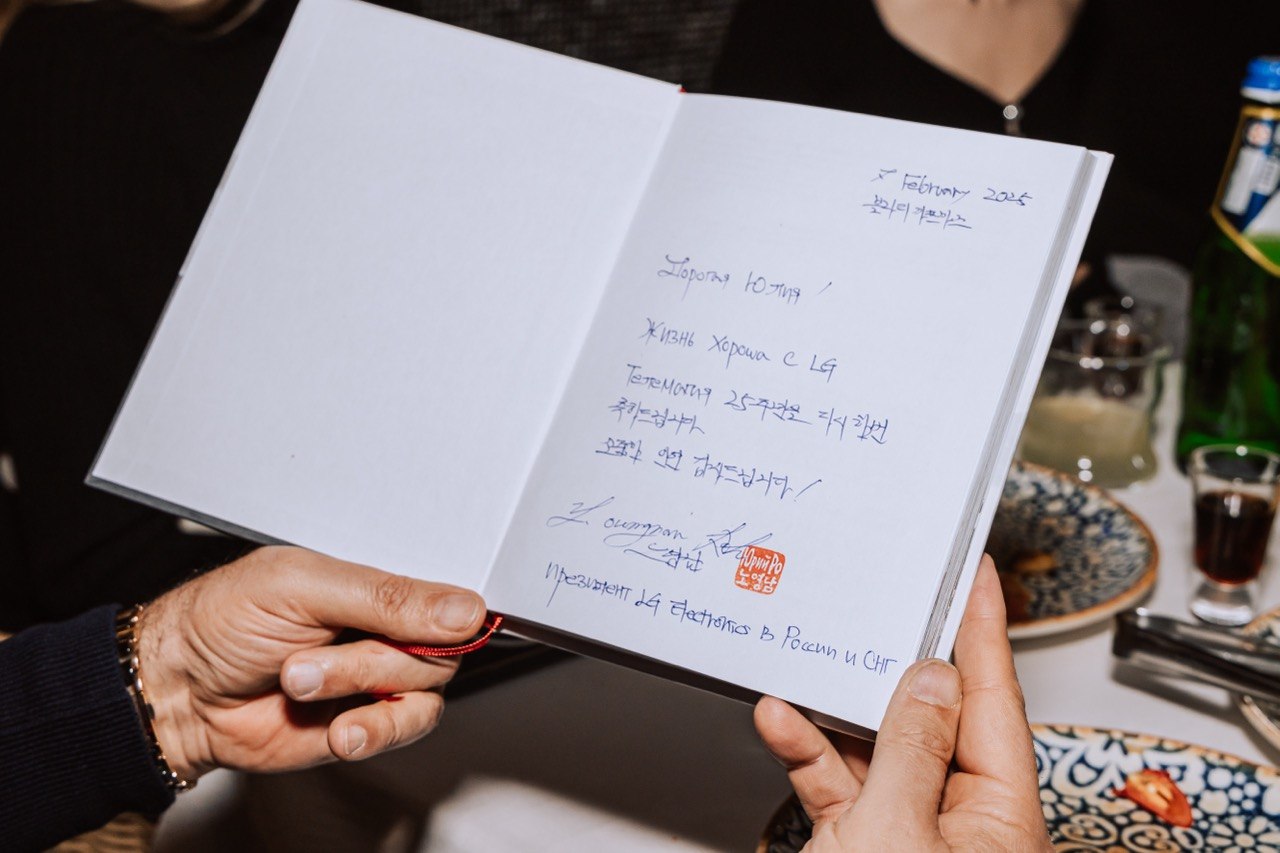 7 February 2025
블라디카프카즈
Дорогая Юлия!
Жизнь хороша с LG
Телемагия 25주년을 다시 한번
축하드립니다.
오랜 인연 감사드립니다!
Youngnam Roh
노영남
Юрий Ро
노영남
Президент LG Electronics в России и СНГ